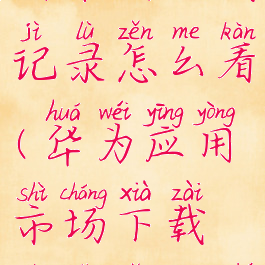 jì lù zěn me kàn
记录怎么看
huá wéi yīng yòng
(华为应用
shì chǎng xià zài
市场下载